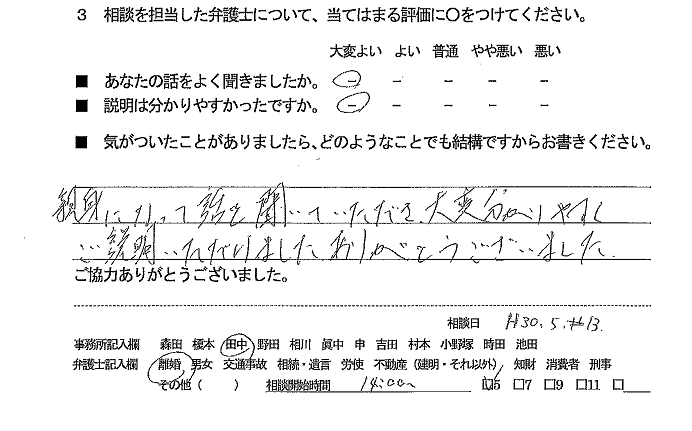 3 相談を担当した弁護士について、当てはまる評価に〇をつけてください。
大変よい よい 普通 やや悪い 悪い
■ あなたの話をよく聞きましたか。 - - - - -
■ 説明は分かりやすかったですか。 - - - - -
■ 気がついたことがありましたら、どのようなことでも結構ですからお書きください。
親身になって話を聞いていただき、大変分かりやすく
ご説明いただけました。ありがとうございました。
ご協力ありがとうございました。
相談日 H30.5.
事務所記入欄 森田 榎本 田中 野田 相川 眞中 申 吉田 村本 小野塚 時田 池田
弁護士記入欄 離婚 男女 交通事故 相続・遺言 労使 不動産(建明・それ以外) 知財 消費者 刑事
その他( ) 相談開始時間 14:00 □5 □7 □9 □11 □